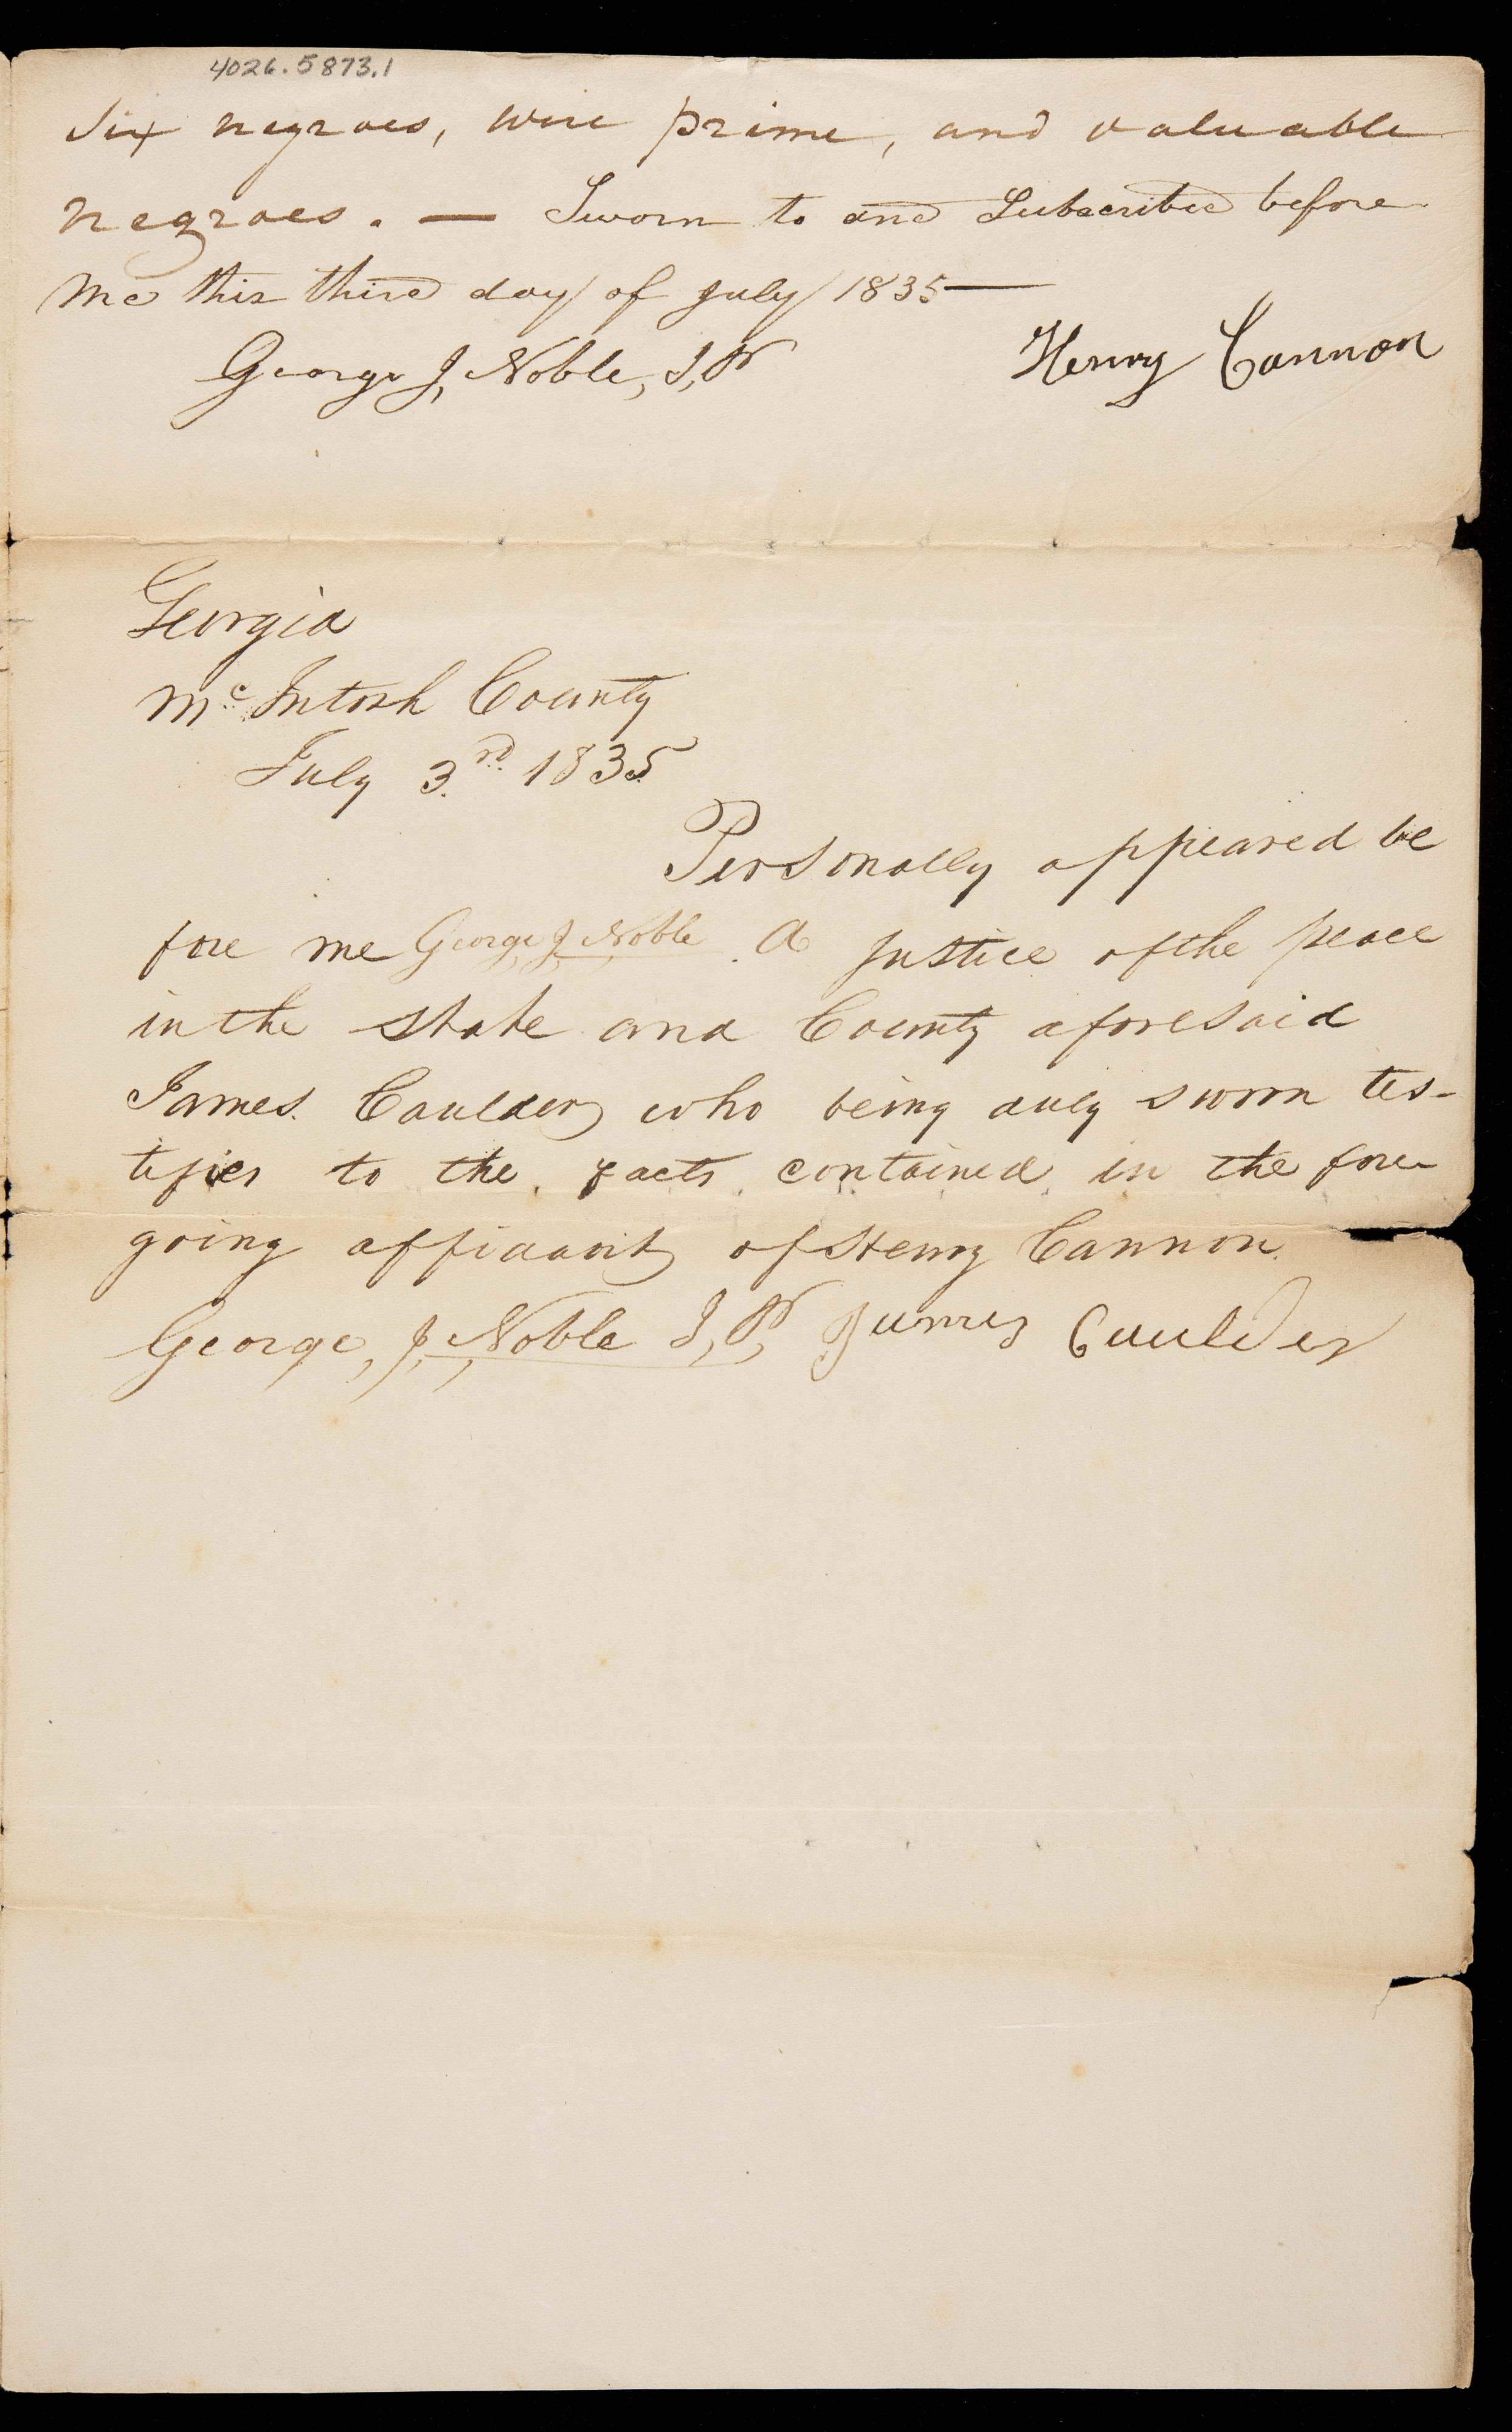 4026.5873.1
Six negroes, were prime, and valuable
negroes. — Sworn to and Subscribed before
me this third day of July 1835 —
George J, Noble, J, P
Henry Cannon
Georgia
Mc Intosh County
July 3rd. 1835
Personally appeared be
fore me George, J, Noble. A Justice of the peace
in the State and County aforesaid
James Caulder who being duly sworn tes-
tifies to the facts contained in the fore
going affidavit of Henry Cannon.
George, J, Noble J, P, James Caulder